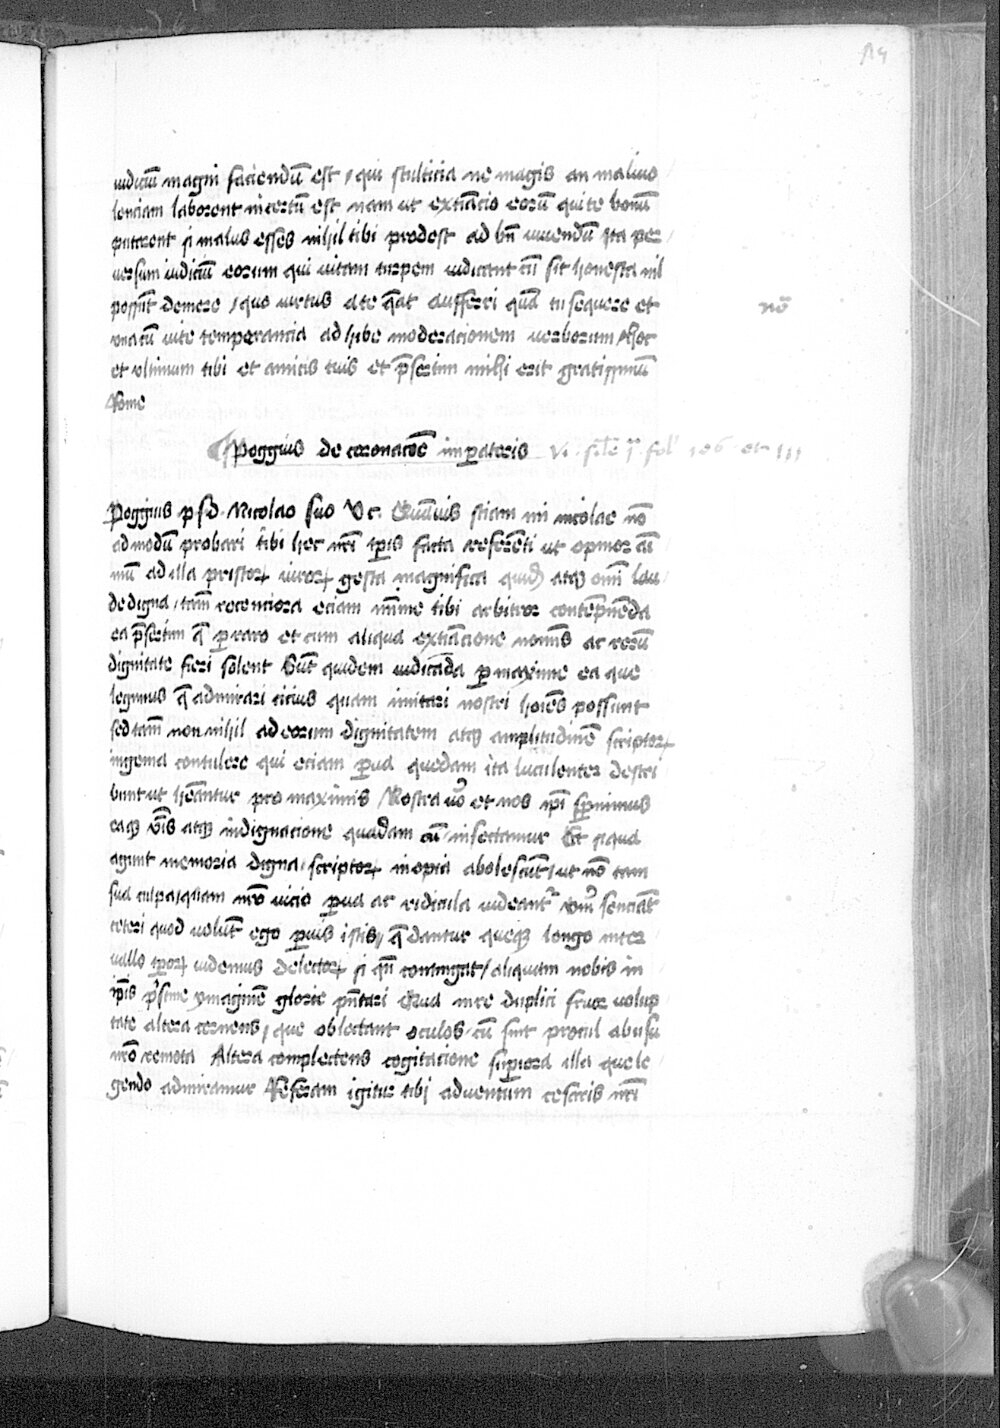 iudiciũ magni faciendũ est / qui stulticia ne magis an maliuo
lenciam laborent incertũ est nam ut extimacio eorũ qui te bonũ
putarent si malus esses nihil tibi prodest ad bñ viuendũ ita per
uersum iudiciũ eorum qui uitam turpem iudicant cũ sit honesta nil
possũt demere / quo uirtus a te q̃at aufferri quã tu sequere et
unacũ uite temperancia adhibe moderacionem uerborum / hoc
et vltimum tibi et amicis tuis et p̃sertim mihi erit gratissimũ
Rome
nõ
Poggius de coronacõe imp̃atoris
Poggius p s d Nicolao suo Vc. Quãuis sciam mi nicolae nõ
admodũ probari tibi hec nr̃i tp̃is facta referẽti ut opinor aĩ
mũ ad illa priscorꝝ uirorꝝ gesta magnifica quidẽ atqꝫ omĩ lau
de digna / tam̃ recenciora eciam mĩme tibi arbitror contẽpnẽda
ea p̃sertim q̃ p̃raro et cum aliqua extimacione nominis ac rerũ
dignitate fieri solent Sũt quidem iudicãda p̃maxime ea que
legimus q̃ admirari cicius quam imitari nostri hoĩes possunt
sed tam̃ non nihil ad eorum dignitatem atqꝫ amplitudinẽ scriptorꝝ
ingenia contulere qui eciam p̃ua quedam ita luculenter descri
bunt ut heãntur pro maximis / Nostra uõ et nos ip̃i sp̃nimus
eaqꝫ uĩs atqꝫ indignacione quadam aĩ insectamur Et si qua
agunt memoria digna / scriptorꝝ inopia abolescũt / ut nõ tam
sua culpa / quam nr̃o uicio p̃ua ac ridicula uideant̃ Vm̃ senciãt
ceteri quod uolũt ego p̃uis istis / q̃ dantur queqꝫ longo inter
uallo tp̃orꝝ uidemus delector si qñ contingat / aliquam nobis in
ip̃is p̃stine ymaginẽ glorie pñtari Qua in re duplici fruor uolup
tate altera cernens / que oblectant oculos / cũ sint procul ab usu
nr̃o remota Altera complectens cogitacione sup̃iora illa que le
gendo admiramur Referam igitur tibi aduentum cesaris nr̃i